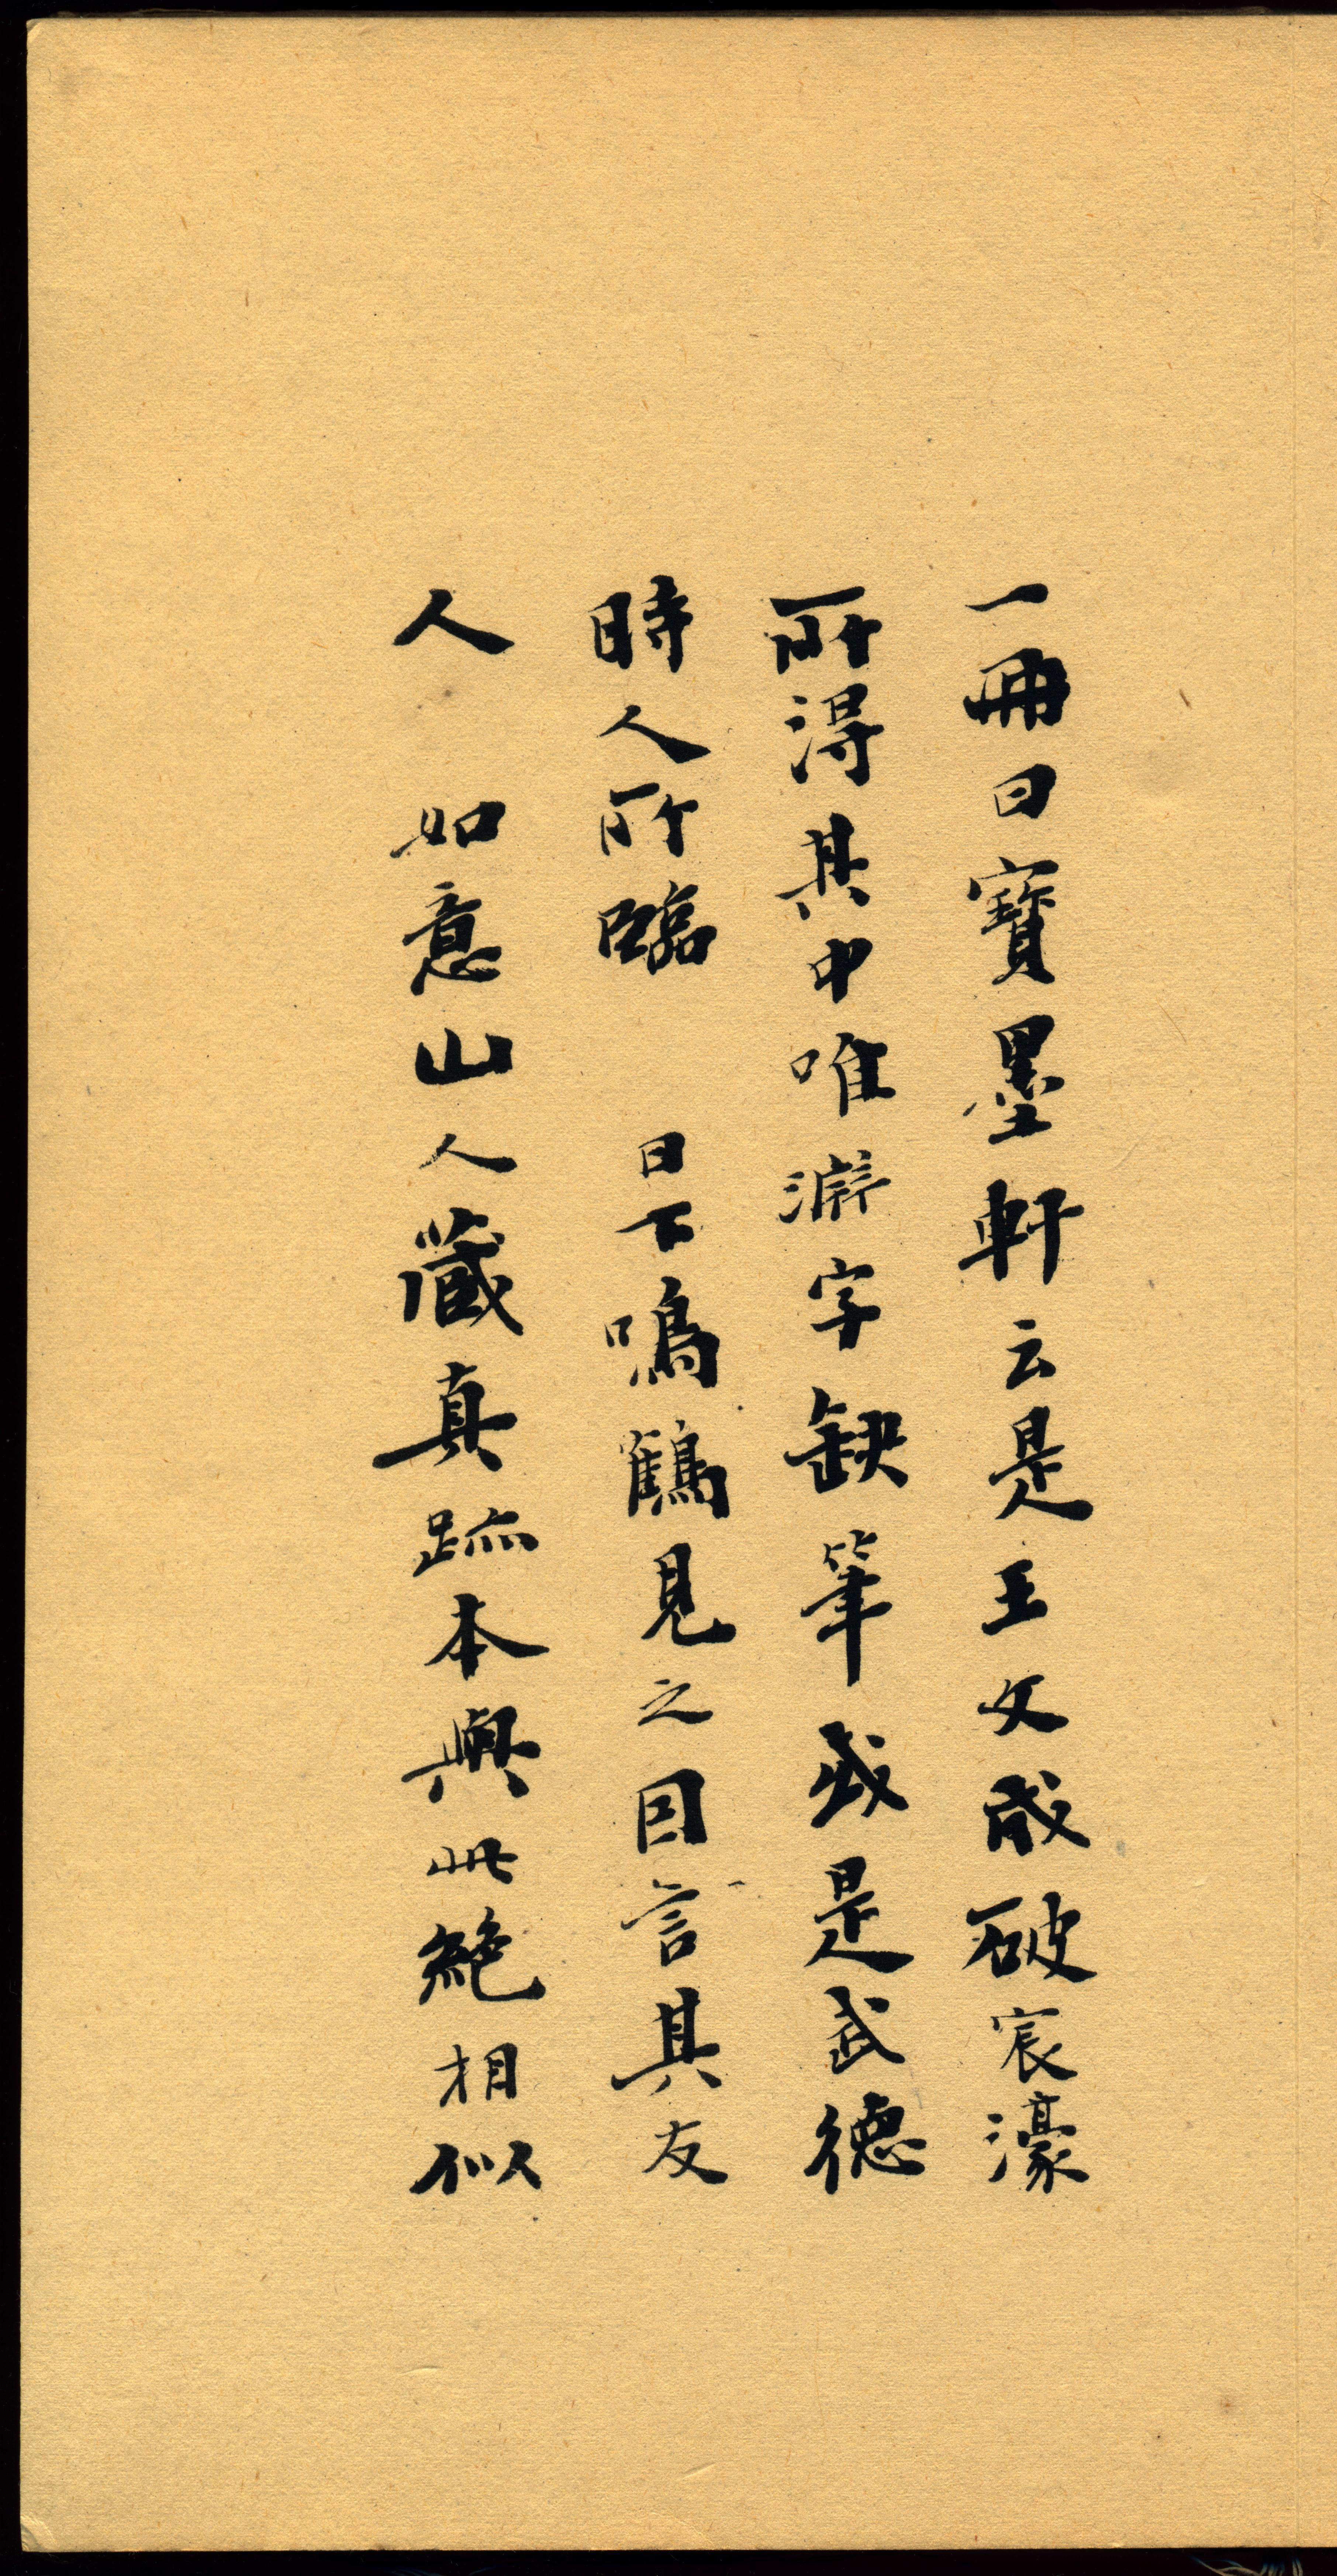 一冊曰寶墨軒云是王文成破宸濠
所得其中唯淵字缺筆或是武德
時人所臨　日下鳴鶴見之因言其友
人　如意山人藏真跡本與此絕相似